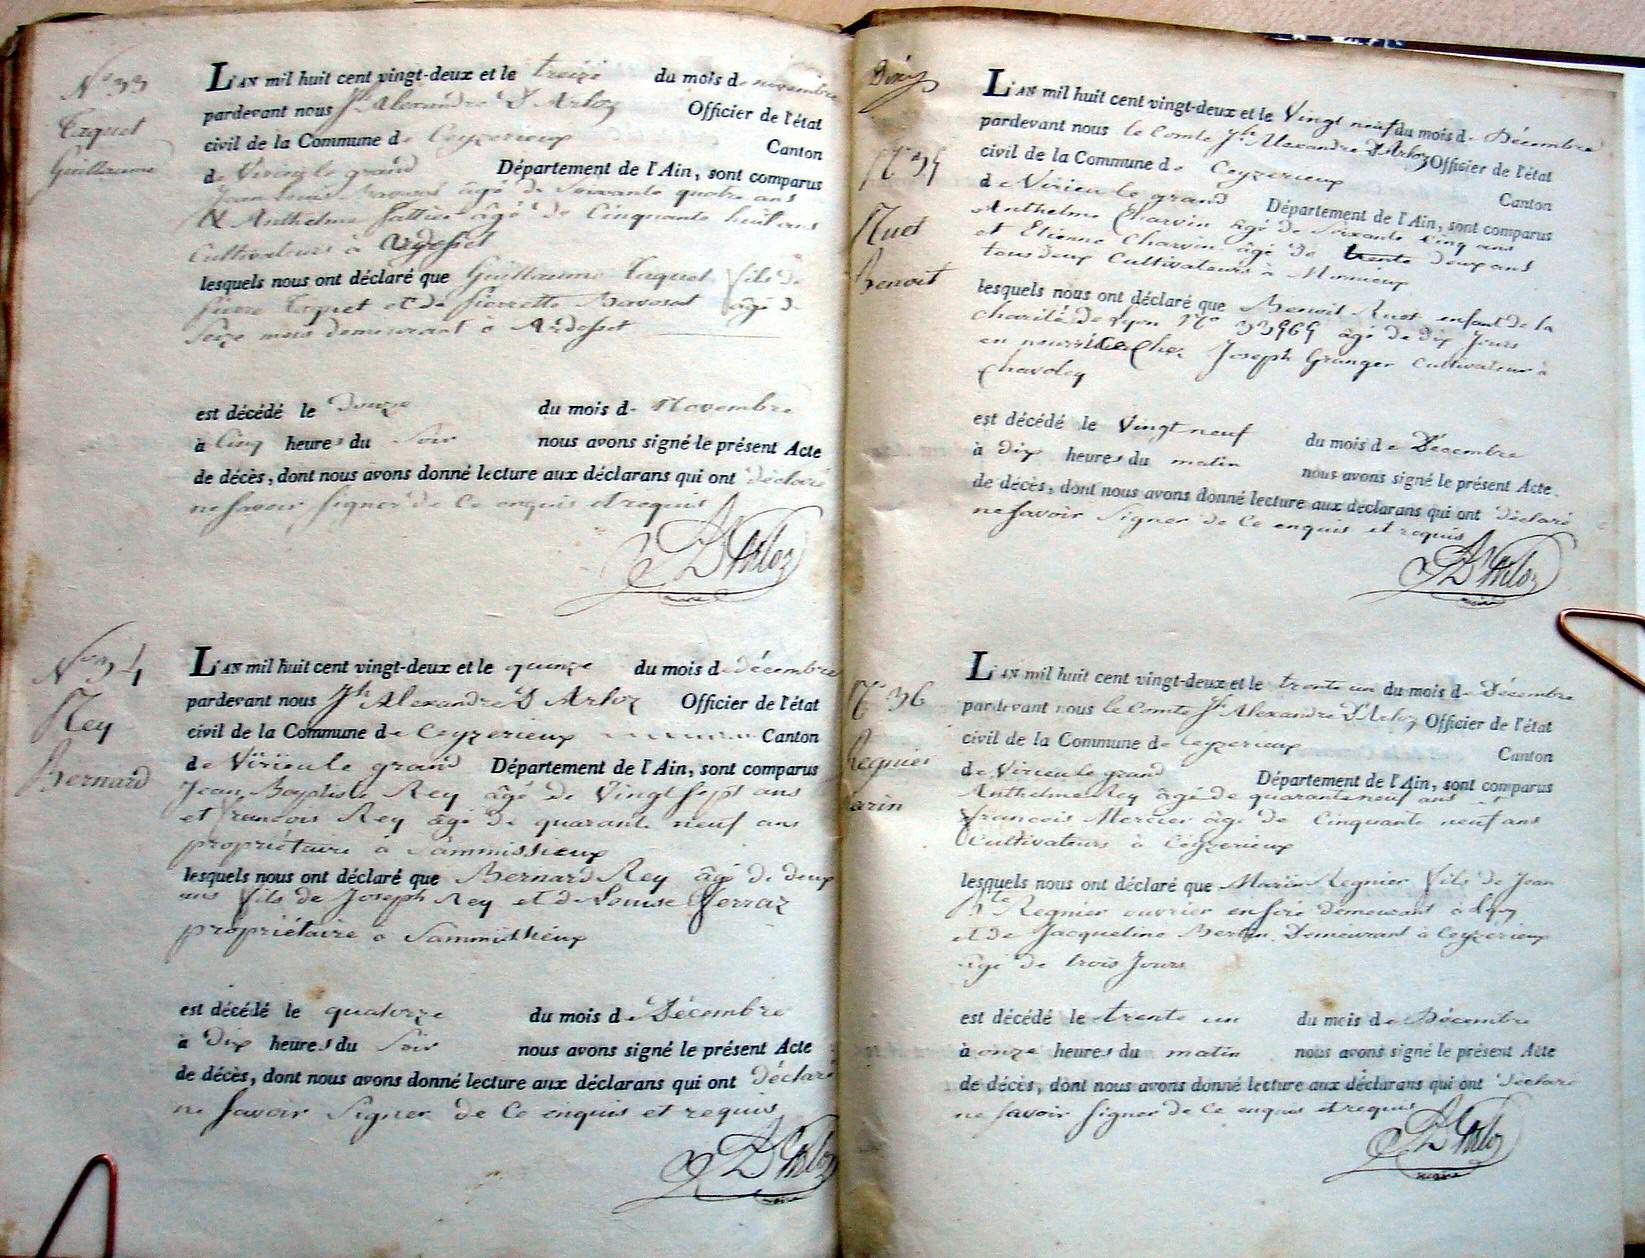 N° 33
Taquet
Guillaume
L'AN mil huit cent vingt-deux et le treize du mois de novembre
pardevant nous Jh Alexandre D'Arloz Officier de l'état
civil de la Commune de Ceyzerieux Canton
de Virieu le grand Département de l'Ain, sont comparus
Jean Louis âgé de Soixante quatre ans
& Anthelme âgé de Cinquante huit ans
Cultivateurs à Ardosset
lesquels nous ont déclaré que Guillaume Taquet fils de
pierre Taquet et de pierrette âgé de
Seize mois demeurant à Ardosset
est décédé le Douze du mois de Novembre
à Cinq heures du Soir nous avons signé le présent Acte
de décès, dont nous avons donné lecture aux déclarans qui ont déclaré
ne savoir signer de Ce enquis et requis
D'Arloz
N° 34
Rey
Bernard
L'AN mil huit cent vingt-deux et le quinze du mois de décembre
pardevant nous Jh Alexandre D'Arloz Officier de l'état
civil de la Commune de Ceyzerieux Canton
de Virieu le grand Département de l'Ain, sont comparus
Jean Baptiste Rey âgé de Vingt sept ans
et françois Rey âgé de quarante neuf ans
propriétaire à Sammissieux
lesquels nous ont déclaré que Bernard Rey âgé de deux
ans fils de Joseph Rey et de Louise ferraz
propriétaire à Sammissieux
est décédé le quatorze du mois de Décembre
à Dix heures du Soir nous avons signé le présent Acte
de décès, dont nous avons donné lecture aux déclarans qui ont Déclaré
ne savoir Signer de Ce enquis et requis
D'Arloz
maire
N° 35
Ruet
Benoit
L'AN mil huit cent vingt-deux et le Vingt neuf du mois de Décembre
pardevant nous le Comte Jh Alexandre D'Arloz Officier de l'état
civil de la Commune de Ceyzerieux Canton
de Virieu le grand Département de l'Ain, sont comparus
Anthelme Charvin âgé de Soixante Cinq ans
et Etienne Charvin âgé de trente deux ans
tous deux Cultivateurs à
lesquels nous ont déclaré que Benoit Ruet enfant de la
charité de Lyon N° 33969 âgé de dix Jours
en nourrice Chez Joseph Granger Cultivateur à
Chavoley
est décédé le Vingt neuf du mois de Décembre
à dix heures du matin nous avons signé le présent Acte
de décès, dont nous avons donné lecture aux déclarans qui ont déclaré
ne savoir Signer de Ce enquis et requis
D'Arloz
maire
N° 36
Regnier
arin
L'AN mil huit cent vingt-deux et le trente un du mois de Décembre
pardevant nous le Comte Jh Alexandre D'Arloz Officier de l'état
civil de la Commune de Ceyzerieux Canton
de Virieu le grand Département de l'Ain, sont comparus
Anthelme Rey âgé de quarante neuf ans et
françois Mercier âgé de Cinquante neuf ans
Cultivateurs à Ceyzerieux
lesquels nous ont déclaré que Marin Regnier fils de Jean
Bte Regnier ouvrier en soie demeurant à Lyon
et de Jacqueline Bertin Demeurant à Ceyzérieux
âgé de trois Jours
est décédé le trente un du mois de Décembre
à onze heures du matin nous avons signé le présent Acte
de décès, dont nous avons donné lecture aux déclarans qui ont déclaré
ne savoir signer de Ce enquis et requis
D'Arloz
maire